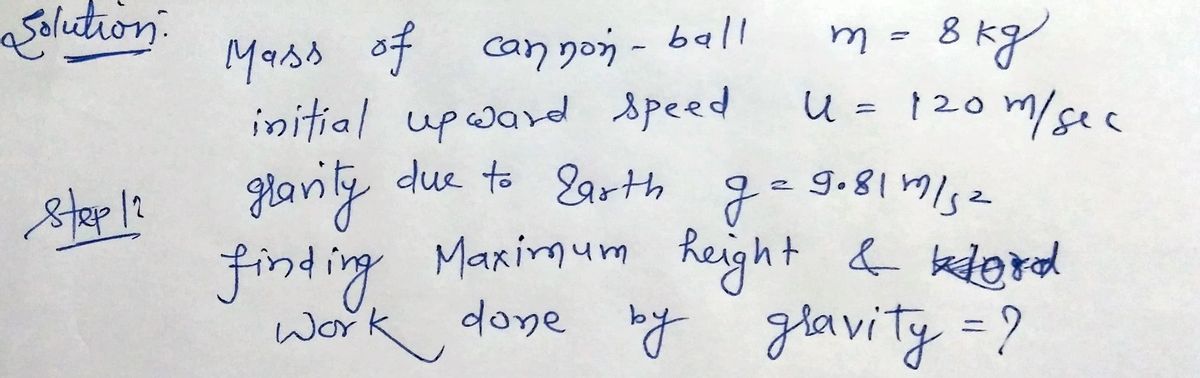 Solution:
Mass of cannon-ball m = 8 kg
initial upward speed u = 120 m/sec
gravity due to Earth g = 9.81 m/s2
Step 1:
finding Maximum height &
work done by gravity = ?